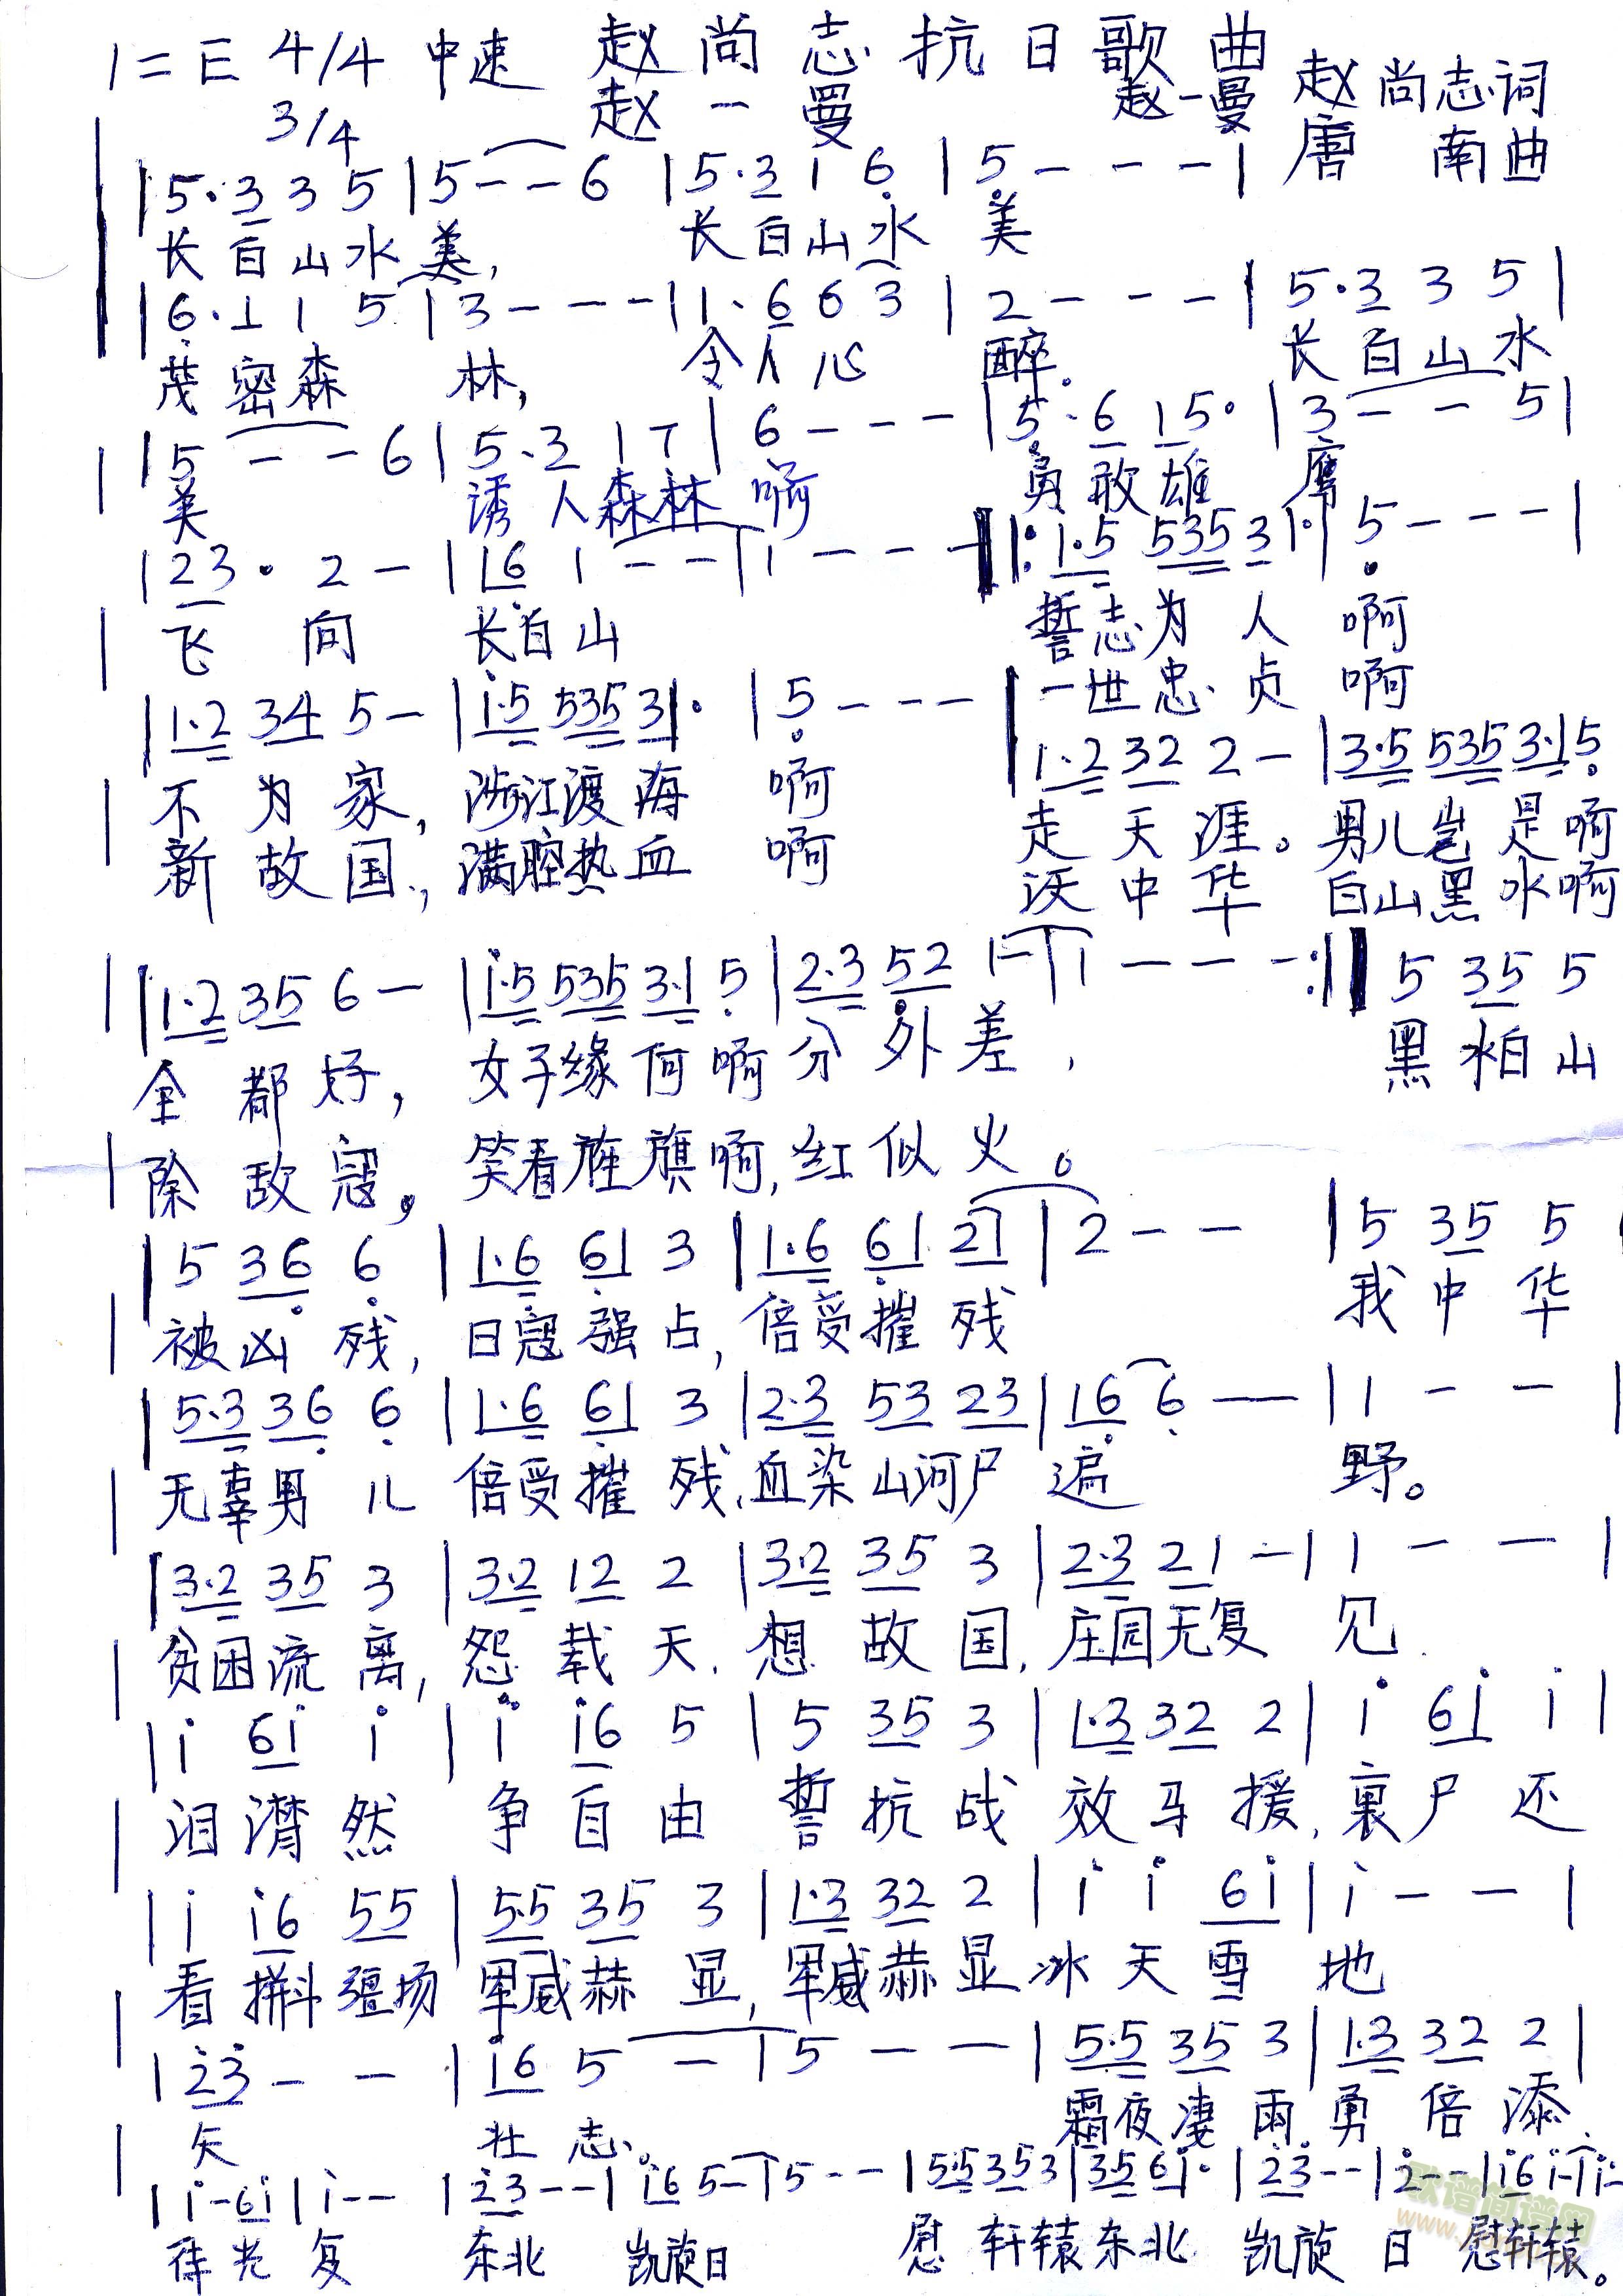 1=E 4/4 中速 赵尚志抗日歌曲
3/4 赵一曼 赵一曼 赵尚志词
唐南曲
|5·3 3 5|5--6|5·3 1 6|5---|
长白山水美, 长白山水美
|6·1 1 5|3---|1·6 6 3|2---|5·3 3 5|
茂密森林, 令人心醉. 长白山水
|5--6|5·3 1 7|6---|5·6 1 5·|3--5|
美 诱人森林啊 勇敢雄鹰
|23·2-|16 1--|1---‖:1·5 535 3 1·|5---|
飞向长白山 誓志为人啊
一世忠贞啊
|1·2 34 5-|i·5 535 31·|5---|1·2 32 2-|3·5 535 3·1 5
不为家,涉江渡海啊 走天涯。男儿岂是啊
新故国,满腔热血啊 沃中华 白山黑水啊
|1·2 35 6-|i·5 535 3·1 5|2·3 52 1-|1---:‖5 35 5
全都好,女子缘何啊分外差, 黑水白山
除敌寇,笑看旌旗啊,红似火。
|5 36 6|1·6 61 3|1·6 61 21|2--|5 35 5
被凶残,日寇强占,倍受摧残 我中华
|5·3 36 6|1·6 61 3|2·3 53 23|16 6-|1--|
无辜男儿倍受摧残,血染山河尸遍野。
|3·2 35 3|3·2 12 2|3·2 35 3|2·3 21-|1--|
贫困流离,怨载天.想故国,庄园无复见
|i 6i i|i i6 5|5 35 3|1·3 32 2|i 6i i|
泪潸然 争自由 誓抗战 效马援,裹尸还
|i i6 55|5·5 35 3|1·3 32 2|i i 6i|i--|
看拼斗疆场军威赫显,军威赫显冰天雪地
|23--|i6 5-|5--|5·5 35 3|1·3 32 2|
矢 壮志。 霜夜凄雨勇倍添
|i-6i|i--|23--|i6 5-|5--|5·5 35 3|35 6i·|23--|2--|i6 i-|i-
待光复 东北 凯旋日 慰轩辕东北 凯旋日 慰轩辕。
歌谱简谱网